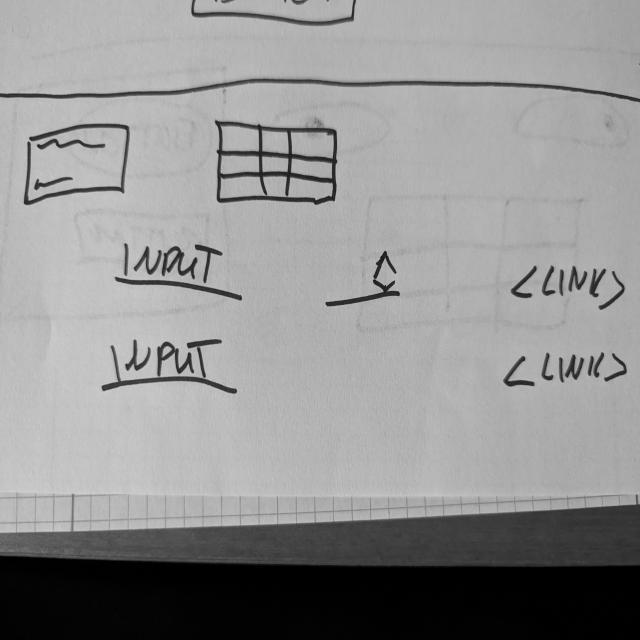 INPUT <LINK>
INPUT <LINK>